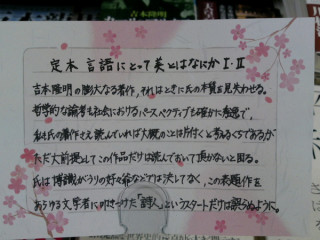 定本 言語にとって美とはなにか Ⅰ・Ⅱ
吉本隆明の膨大なる著作、それはときに氏の本質を見失わせる。
哲学的な論考も社会におけるパースペクティブも確かに秀逸で、
私も氏の著作さえ読んでいれば大概のことは片付くと考えるくちであるが
ただ大前提としてこの作品だけは読んでおいて頂かないと困る。
氏は博識がうりの好々爺などでは決してなく、この表題作を
あらゆる文学者に向けはなった「詩人」というスタートだけは誤らぬように。